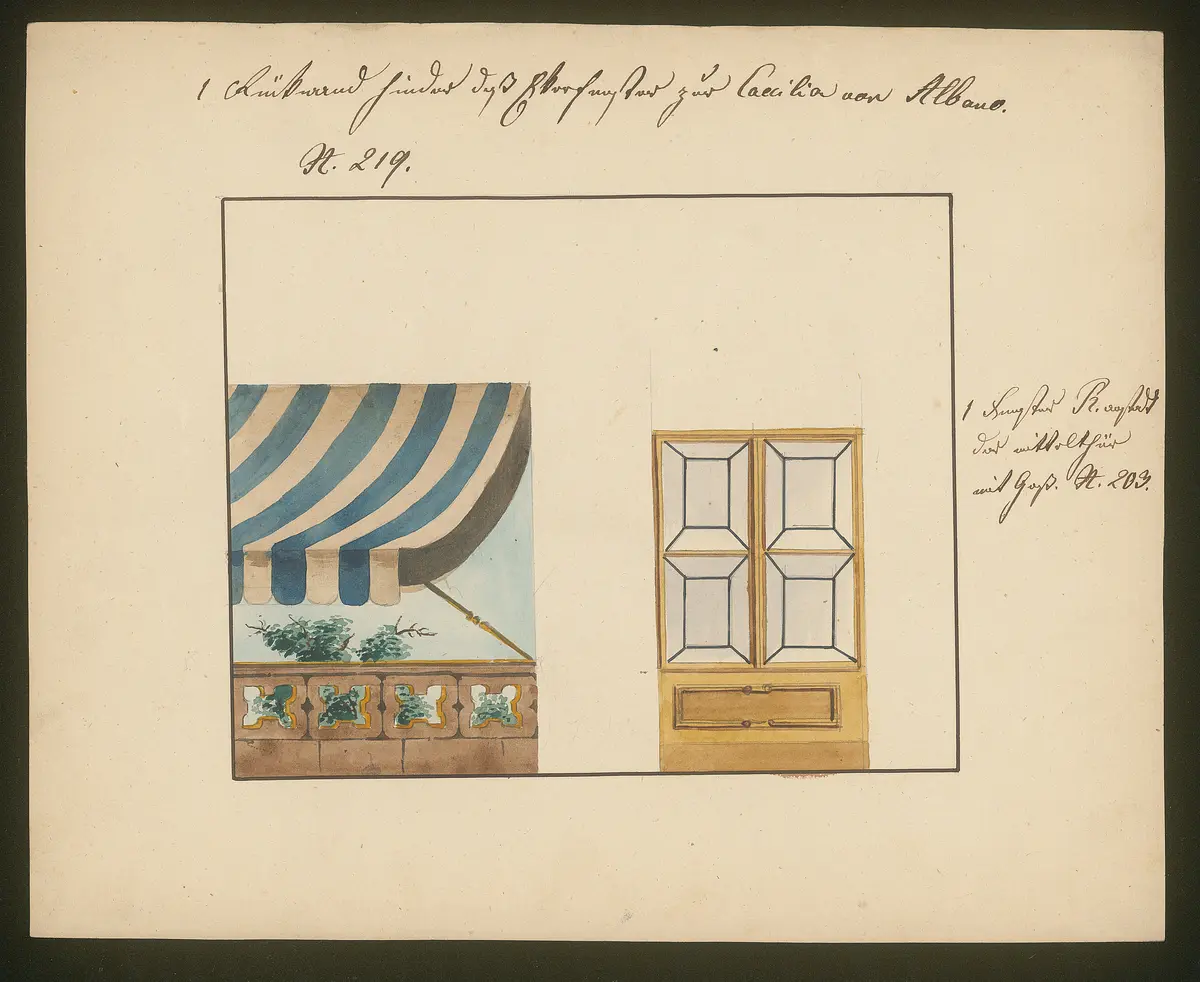 1 Rückwand hinder daß Ekerfenster zur Caecilia von Albano.
N. 219.
1 Fenster R. anstatt
der mittelthür
mit N. 203.